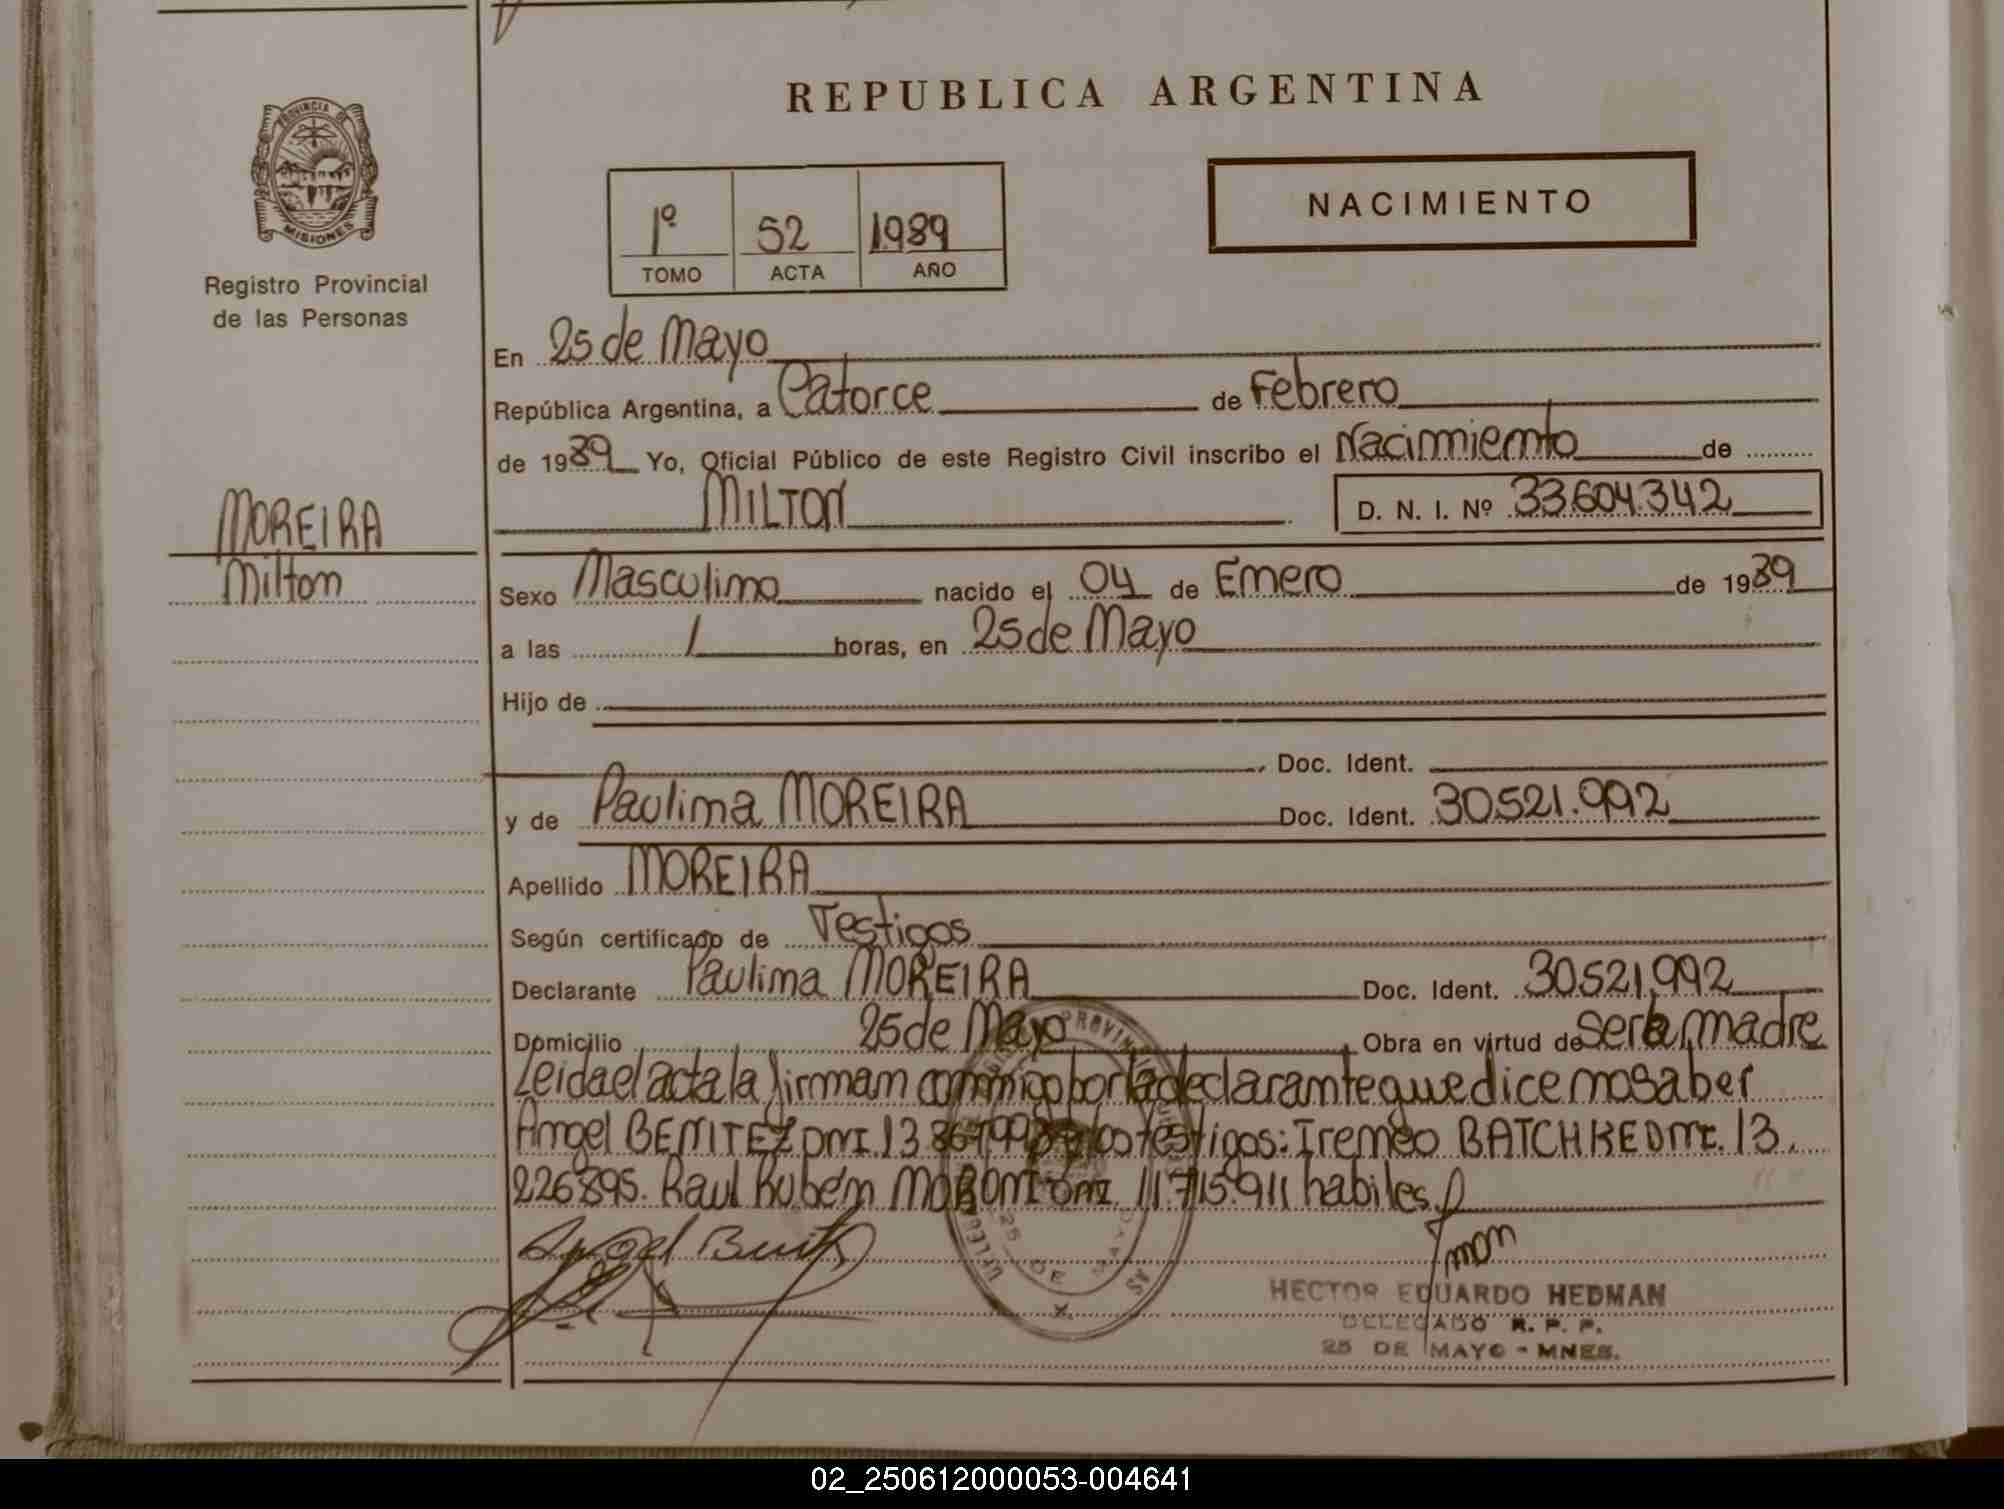 REPUBLICA ARGENTINA
PROVINCIA DE
MISIONES
Registro Provincial
de las Personas
1º 52 1989
TOMO ACTA AÑO
NACIMIENTO
En 25 de Mayo
República Argentina, a Catorce de Febrero
de 1989 Yo, Oficial Público de este Registro Civil inscribo el Nacimiento de
MILTON D. N. I. Nº 33.604.342
MOREIRA
Milton
Sexo Masculino nacido el 04 de Enero de 1989
a las 1 horas, en 25 de Mayo
Hijo de
Doc. Ident.
y de Paulina MOREIRA Doc. Ident. 30.521.992
Apellido MOREIRA
Según certificado de Testigos
Declarante Paulina MOREIRA Doc. Ident. 30.521.992
Domicilio 25 de Mayo Obra en virtud de ser la madre
Leida el acta la firman conmigo por la declarante que dice no saber
Angel BENITEZ DNI. 13.867.993 y los testigos: Ireneo BATCHKE DNI. 13.
226.895. Raul Ruben MORONI DNI. 11.715.911 habiles
25 DE MAYO
HECTOR EDUARDO HEDMAN
DELEGADO R. P. P.
25 DE MAYO - MNES.
02_250612000053-004641